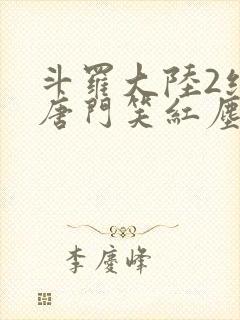 斗羅大陸2
唐門笑紅塵
李慶峰